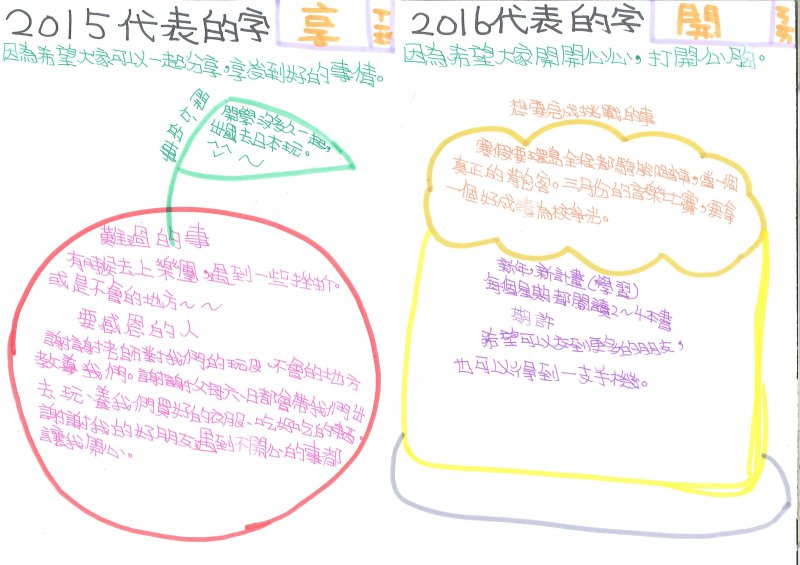 2015代表的字 享
因為希望大家可以一起分享,享受到好的事情。
開學沒多久一起,
出國去日本玩。
難過的事
有時候去上樂團,遇到一些挫折。
或是不會的地方～～
要感恩的人
謝謝老師對我們的玩皮、不會的地方
教導我們。謝謝父母六、日都會帶我們出
去玩、養我們買好的衣服、吃好吃的
謝謝我的好朋友遇到不開心的事都
讓我開心。
2016代表的字 開
因為希望大家開開心心,打開心胸。
想要完成挑戰的事
寒假要環島全程都騎腳踏車,當一個
真正的背包客。三月份的音樂比賽,要拿
一個好成績為校爭光。
新年,新計畫(學習)
每個星期都閱讀2～4本書
期許
希望可以交到更多的朋友,
也可以得到一支手機。